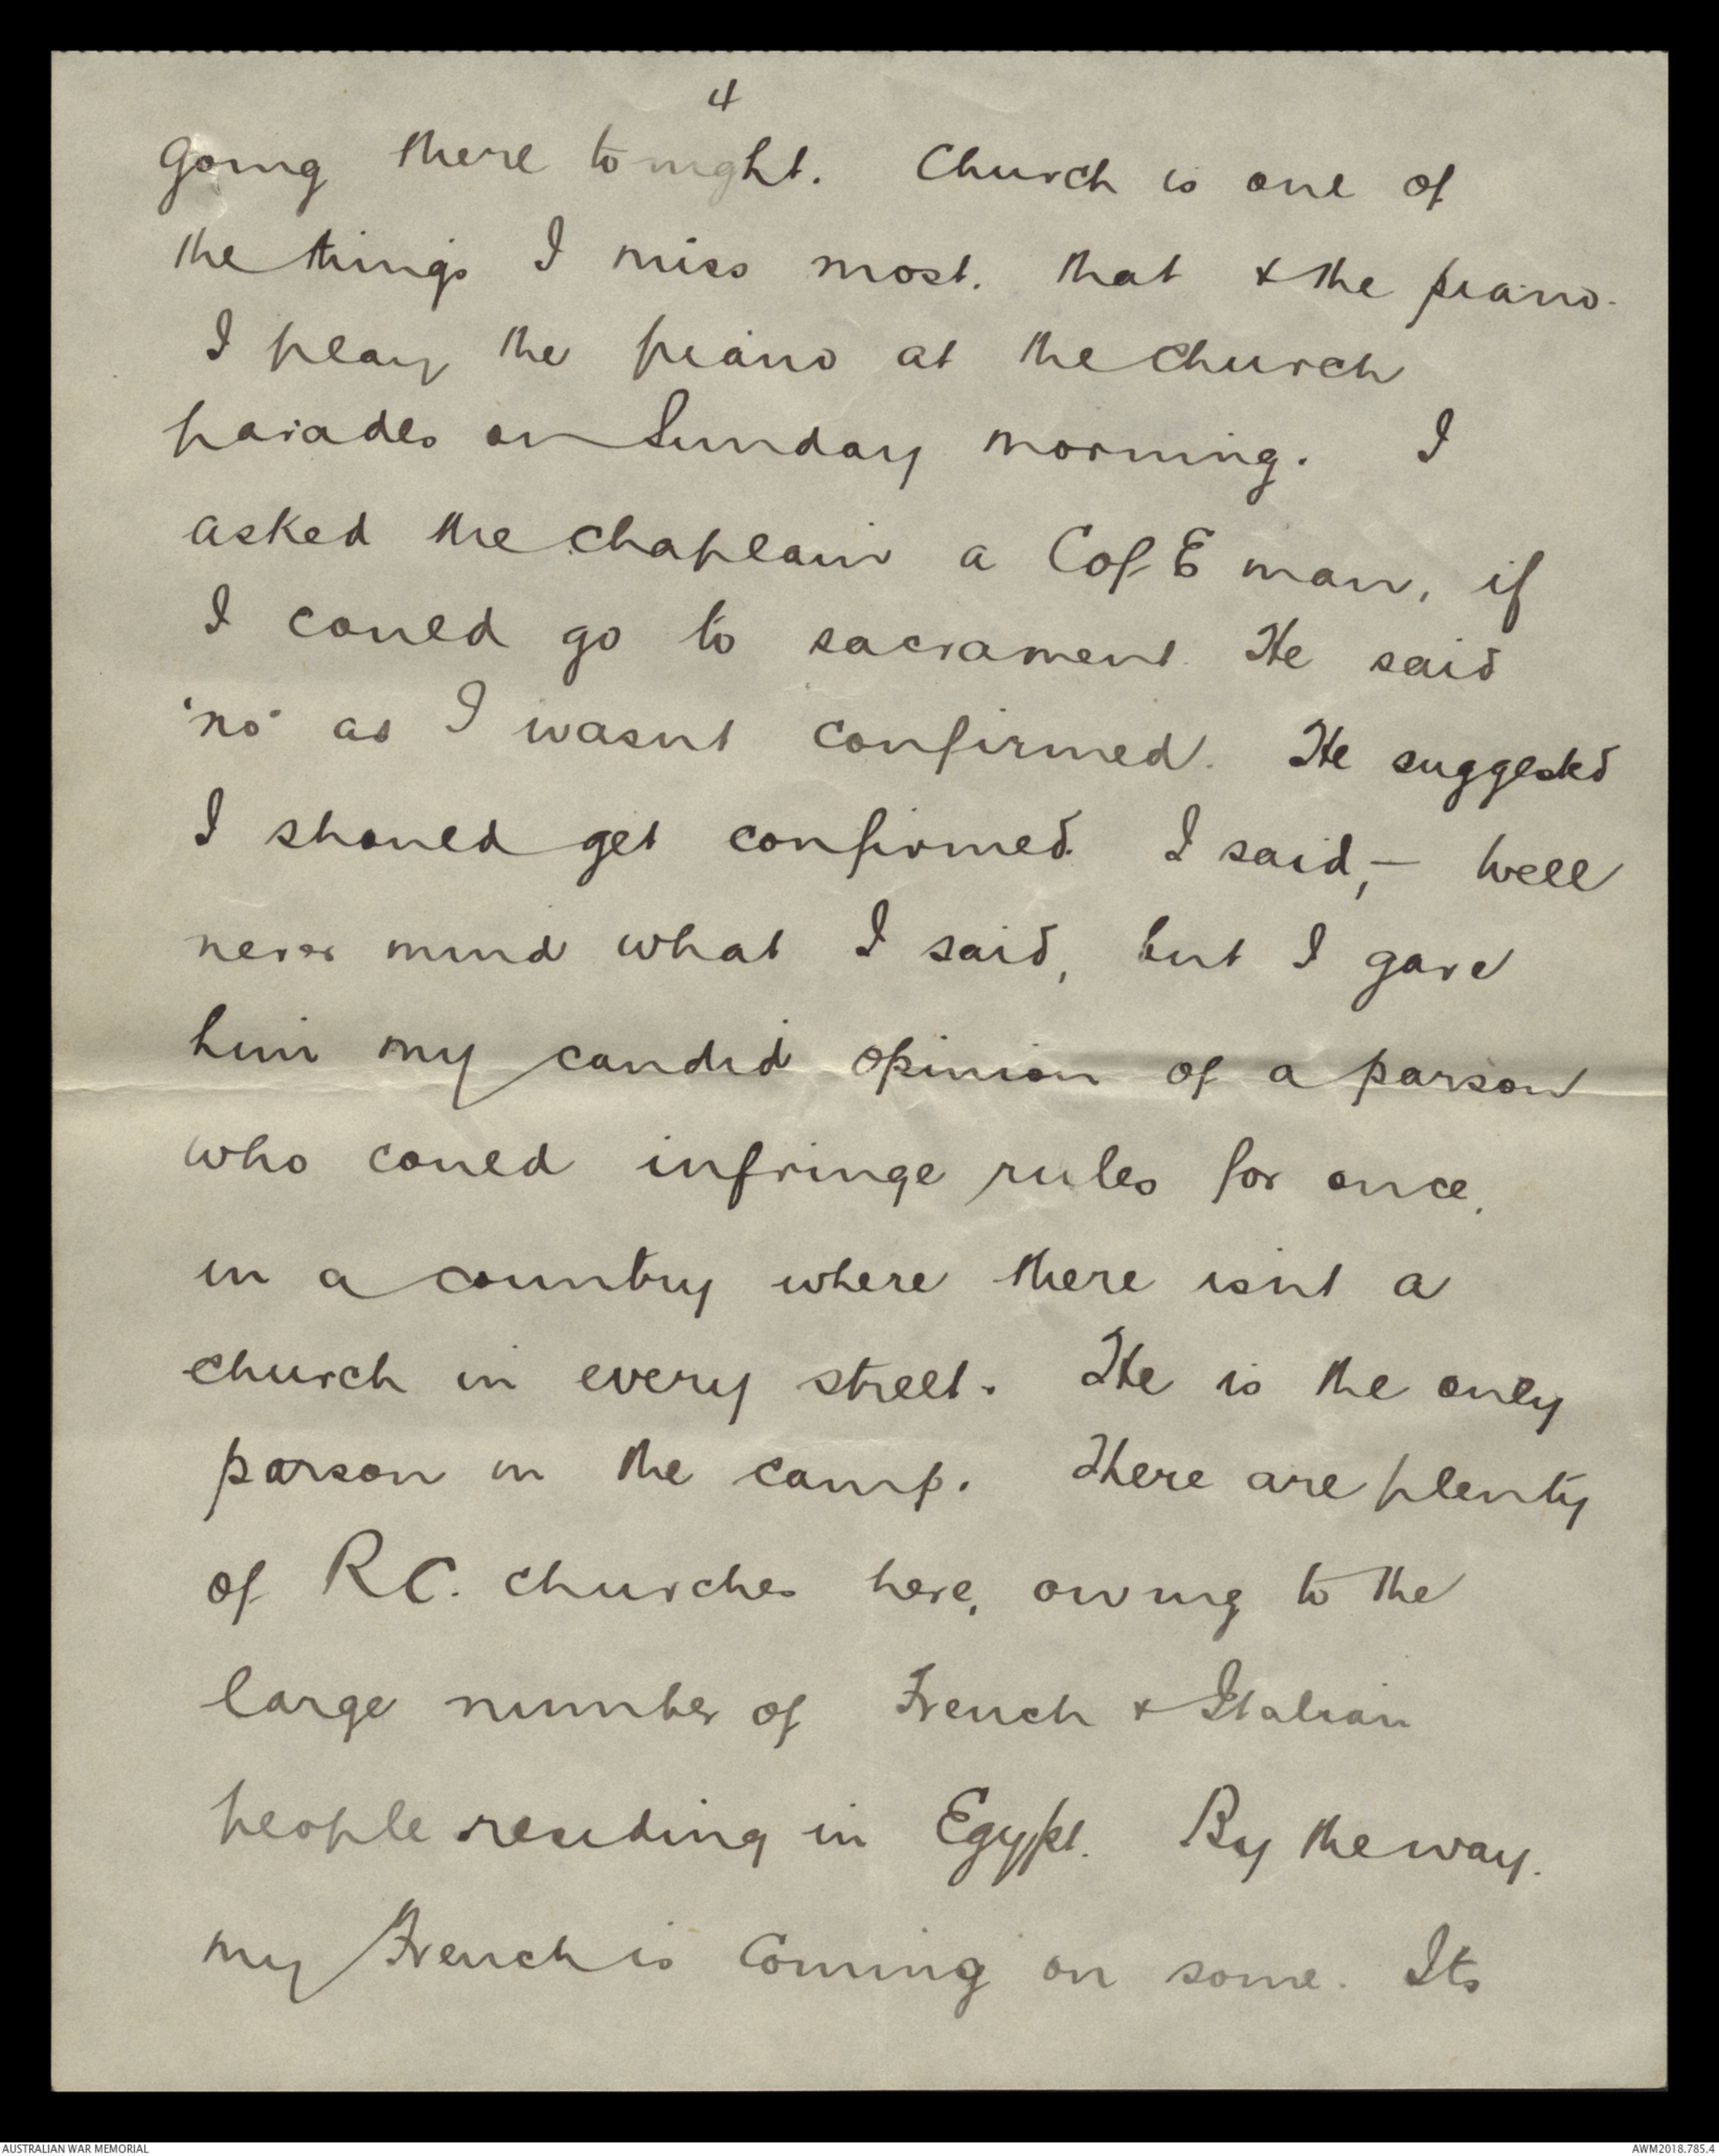 4
going there tonight. Church is one of
the things I miss most. that & the piano.
I play the piano at the church
parades on Sunday morning. I
asked the chaplain a C of E man, if
I could go to sacrament. He said
'no' as I wasnt confirmed. He suggested
I should get confirmed. I said,- Well
never mind what I said, but I gave
him my candid opinion of a parson
who could infringe rules for once,
in a country where there isnt a
church in every street. He is the only
parson in the camp. There are plenty
of R C. churches here, owing to the
large number of French & Italian
people residing in Egypt. By the way.
my French is coming on some. Its
AUSTRALIAN WAR MEMORIAL
AWM2018.785.4